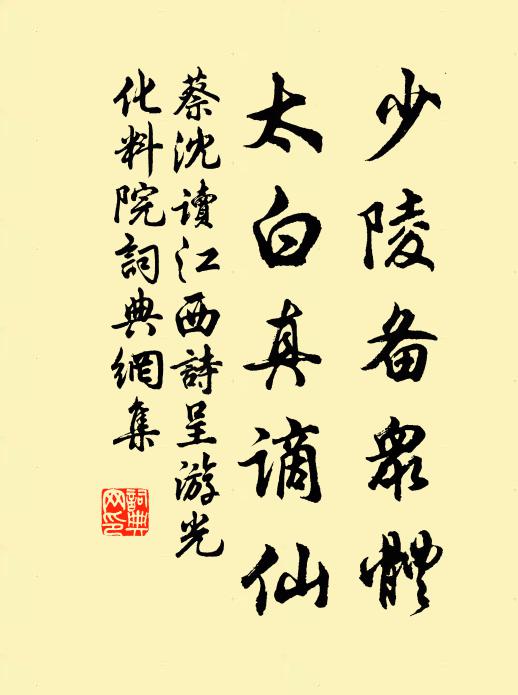 少陵备眾體
太白真謫仙
蔡沈讀江西詩呈游光
化料院詞典網集
詞典网印